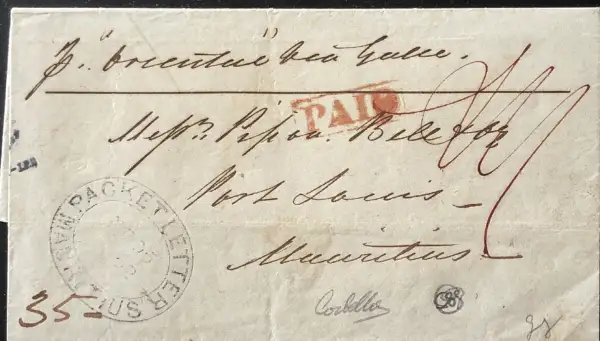 p. "Oriental" Via Galle.
PAID
Messrs. Pipon Bell & Co
Port Louis
Mauritius
PACKET LETTER MAURITIUS
35